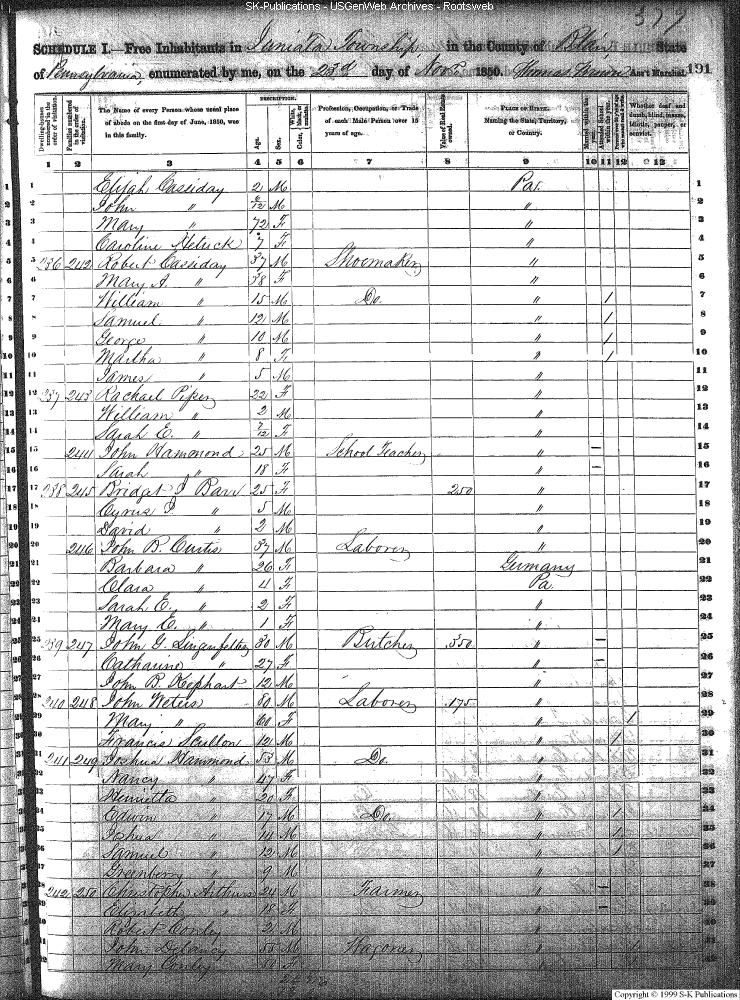 SK-Publications - USGenWeb Archives - Rootsweb
377
SCHEDULE I.—Free Inhabitants in Juniata Township in the County of State
of Pennsylvania, enumerated by me, on the 23d day of Nov. 1850. Thomas Ass't Marshal. 191
Dwelling-houses numbered in the order of visitation. Families numbered in the order of visitation. The Name of every Person whose usual place of abode on the first day of June, 1850, was in this family. DESCRIPTION. Age. Sex. Color, White, black, or mulatto. Profession, Occupation, or Trade of each Male Person over 15 years of age. Value of Real Estate owned. PLACE OF BIRTH. Naming the State, Territory, or Country. Married within the year. Attended School within the year. Whether deaf and dumb, blind, insane, idiotic, pauper, or convict.
1 2 3 4 5 6 7 8 9 10 11 12 13
1 Elijah Cassiday 2 M Pa. 1
2 John " 6/12 M " 2
3 Mary " 72 F " 3
4 Caroline 7 F " 4
5 236 242 Robert Cassiday 37 M Shoemaker " 5
6 Mary A. " 38 F " 6
7 William " 15 M Do. " / 7
8 Samuel " 12 M " / 8
9 George " 10 M " / 9
10 Martha " 8 F " / 10
11 James " 5 M " 11
12 237 243 Rachael Piper 22 F " 12
13 William " 2 M " 13
14 Sarah E. " 7/12 F " 14
15 244 John Hammond 25 M School Teacher " — 15
16 Sarah " 18 F " — 16
17 238 245 Bridget J Barr 25 F 250 " 17
18 Cyrus J. " 5 M " 18
19 David " 2 M " 19
20 246 John B. Curtis 37 M Laborer " 20
21 Barbara " 26 F Germany 21
22 Clara " 4 F Pa. 22
23 Sarah E. " 2 F " 23
24 Mary E. " 1 F " 24
25 239 247 John G. Lingenfelter 30 M Butcher 350 " — 25
26 Catharine " 27 F " — 26
27 John B. Kephart 12 M " 27
28 240 248 John Weters 80 M Laborer 175 " 28
29 Mary " 60 F " / 29
30 Francis Scullon 12 M " / 30
31 241 249 Joshua Hammond 53 M Do. " 31
32 Nancy " 47 F " 32
33 Henrietta " 20 F " 33
34 Edwin " 17 M Do. " / 34
35 Joshua " 14 M " / 35
36 Samuel " 12 M " / 36
37 Greenberry " 9 M " 37
38 242 250 Christopher Arthurs 24 M Farmer " — 38
39 Elizabeth " 18 F " — 39
40 Robert Conley 2 M " 40
41 John Delancy 55 M Wagoner " 41
42 Mary Conley F " 42
Copyright © 1999 S-K Publications